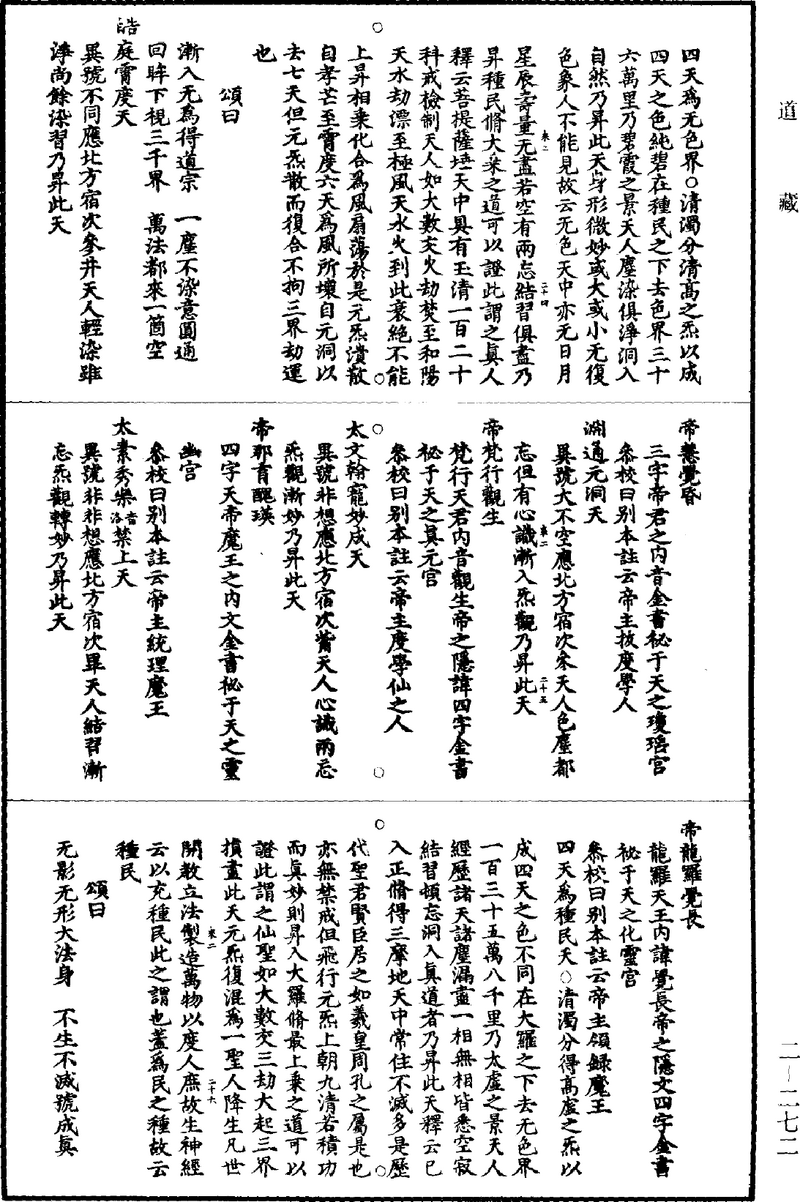 道藏
四天爲无色界○清濁分清高之炁以成
四天之色純碧在種民之下去色界三十
六萬里乃碧霞之景天人塵染俱淨洞入
自然乃昇此天身形微妙或大或小无復
色象人不能見故云无色天中亦无日月
星辰壽量无盡若空有兩忘結習俱盡乃
昇種民脩大乘之道可以證此謂之真人
釋云菩提薩埵天中具有玉清一百二十
科戒檢制天人如大數交火劫焚至和陽
天水劫漂至極風天水火到此衰絕不能
上昇相乘化合爲風扇蕩於是元炁潰散
自孝芒至霄度六天爲風所壞自元洞以
去七天但元炁散而復合不拘三界劫運
也
頌曰
漸入无爲得道宗　一塵不染意圓通
回眸下視三千界　萬法都來一箇空
皓庭霄度天
異號不同應北方宿次參井天人輕染雖
淨尚餘染習乃昇此天
帝慧覺昏
三字帝君之内音金書秘于天之瓊瑤宫
叅校曰别本註云帝主拔度學人
淵通元洞天
異號大不空應北方宿次参天人色塵都
忘但有心識漸入炁觀乃昇此天
帝梵行觀生
梵行天君内音觀生帝之隱諱四字金書
秘于天之真元宫
叅校曰别本註云帝主度學仙之人
太文翰寵妙成天
異號非想應北方宿次觜天人心識兩忘
炁觀漸妙乃昇此天
帝那育醜瑛
四字天帝魔王之内文金書秘于天之靈
幽宫
叅校曰别本註云帝主統理魔王
太素秀樂音洛禁上天
異號非非想應北方宿次畢天人結習漸
忘炁觀轉妙乃昇此天
帝龍羅覺長
龍羅天王内諱覺長帝之隱文四字金書
秘于天之化靈宫
叅校曰别本註云帝主領録魔王
四天爲種民天○清濁分得高虚之炁以
成四天之色不同在大羅之下去无色界
一百三十五萬八千里乃太虚之景天人
經歷諸天諸塵漏盡一相無相皆悉空寂
結習頓忘洞入真道者乃昇此天釋云已
入正脩得三摩地天中常住不滅多是歷
代聖君賢臣居之如羲皇周孔之屬是也
亦無禁戒但飛行元炁上朝九清若積功
而真妙則昇入大羅脩最上乘之道可以
證此謂之仙聖如大數交三劫大起三界
損盡此天元炁復混爲一聖人降生凡世
開教立法製造萬物以度人庶故生神經
云以充種民此之謂也蓋爲民之種故云
種民
頌曰
无影无形大法身　不生不滅號成真
二－二七二